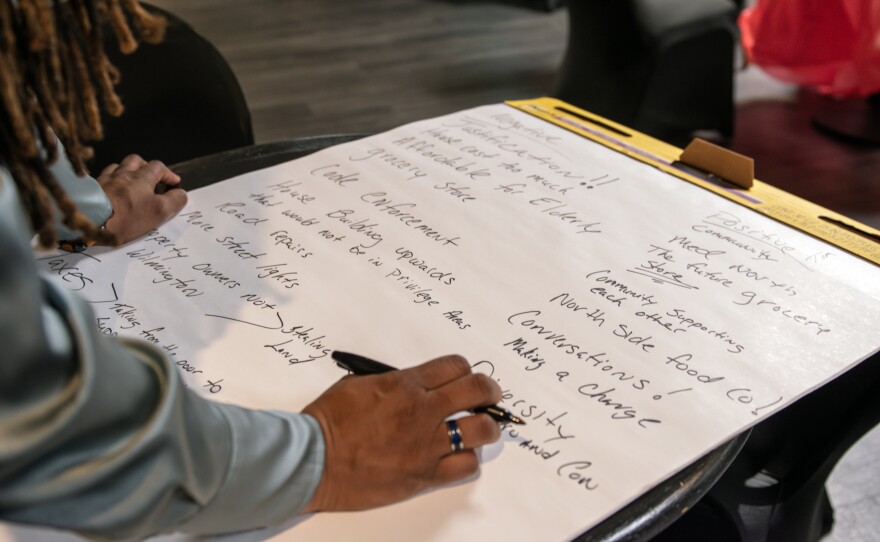 Negative
Justification!!
House cost too much
Affordable for Elderly
grocery store
Code enforcement
Building upwards
House that would not be in Privilege Areas
Road repairs
More street lights
Property Owners Not
Wilmington
Stealing
Land
Taxes
Taking from the poor to
Positive
Community
Need North
The future grocery
Store
Community Supporting
each other
North side food Co!
Conversations!
Making a change
Diversity
and Con